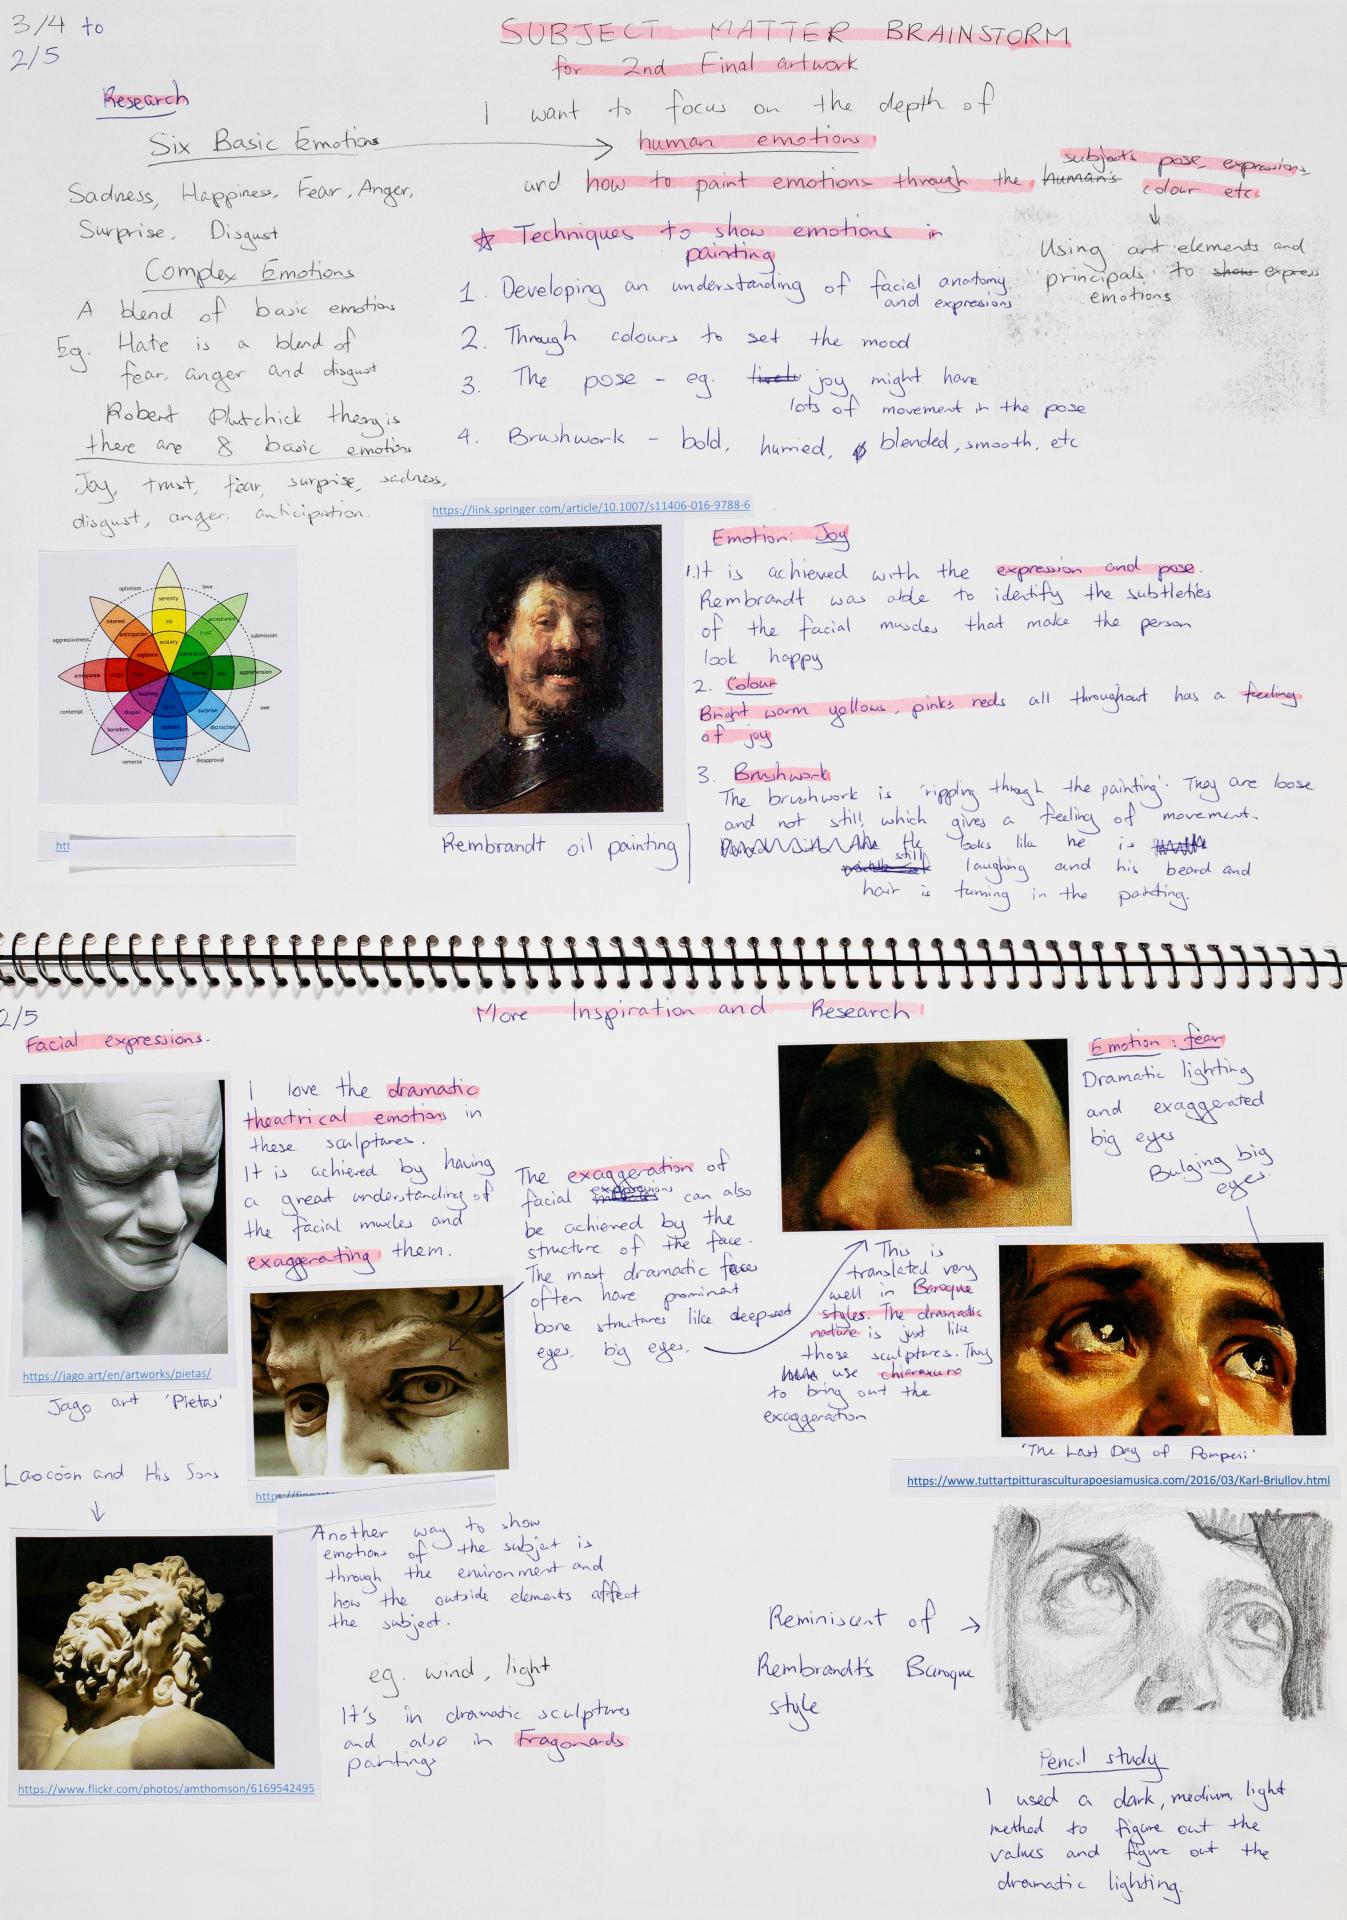 3/4 to
2/5
SUBJECT MATTER BRAINSTORM
for 2nd Final artwork
Research
Six Basic Emotions
Sadness, Happiness, Fear, Anger,
Surprise, Disgust
Complex Emotions
A blend of basic emotions
Eg. Hate is a blend of
fear, anger and disgust
Robert Plutchick theory is
there are 8 basic emotions
Joy, trust, fear, surprise, sadness,
disgust, anger, anticipation.
I want to focus on the depth of
human emotions
and how to paint emotions through the human's subject's pose, expressions,
colour etc.
Using art elements and
principals to show express
emotions
Techniques to show emotions in
painting
1. Developing an understanding of facial anatomy
and expressions
2. Through colours to set the mood
3. The pose - eg. joy might have
lots of movement in the pose
4. Brushwork - bold, hurried, blended, smooth, etc
optimism
love
serenity
interest
acceptance
joy
anticipation
trust
aggressiveness
submission
ecstasy
vigilance
admiration
annoyance
anger
terror
fear
apprehension
loathing
amazement
disgust
surprise
contempt
awe
sadness
boredom
distraction
pensiveness
remorse
disapproval
htt
https://link.springer.com/article/10.1007/s11406-016-9788-6
Rembrandt oil painting
Emotion: Joy
1. It is achieved with the expression and pose.
Rembrandt was able to identify the subtleties
of the facial muscles that make the person
look happy
2. Colour
Bright warm yellows, pinks reds all throughout has a feeling
of joy
3. Brushwork
The brushwork is 'rippling through the painting'. They are loose
and not still, which gives a feeling of movement.
He looks like he is
still laughing and his beard and
hair is turning in the painting.
2/5
More Inspiration and Research
Facial expressions.
I love the dramatic
theatrical emotions in
these sculptures.
It is achieved by having
a great understanding of
the facial muscles and
exaggerating them.
https://jago.art/en/artworks/pietas/
Jago art 'Pietas'
The exaggeration of
facial expressions can also
be achieved by the
structure of the face.
The most dramatic faces
often have prominent
bone structures like deepset
eyes, big eyes.
Emotion: fear
Dramatic lighting
and exaggerated
big eyes
Bulging big
eyes.
This is
translated very
well in Baroque
styles. The dramatic
nature is just like
those sculptures. They
use chiaroscuro
to bring out the
exaggeration
'The Last Day of Pompeii'
https://www.tuttartpitturasculturapoesiamusica.com/2016/03/Karl-Briullov.html
Laocoön and His Sons
https://www.flickr.com/photos/amthomson/6169542495
Another way to show
emotions of the subject is
through the environment and
how the outside elements affect
the subject.
eg. wind, light
It's in dramatic sculptures
and also in Fragonards
paintings
Reminiscent of
Rembrandt's Baroque
style
Pencil study
I used a dark, medium, light
method to figure out the
values and figure out the
dramatic lighting.